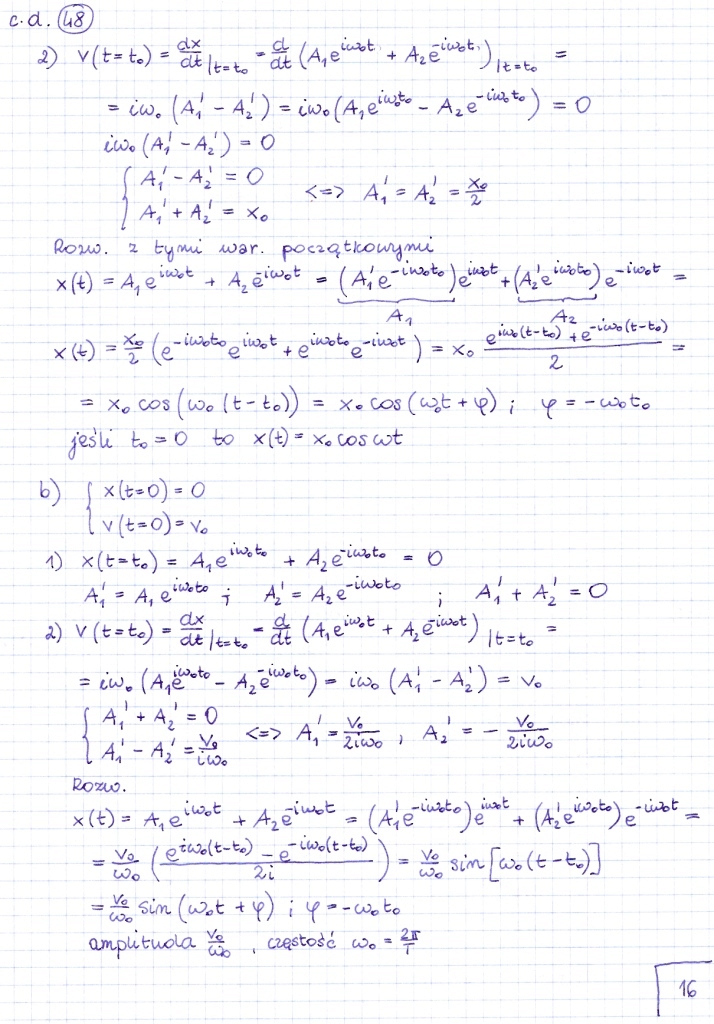 c.d. 48
2) v(t=t₀) = dx/dt |t=t₀ = d/dt (A₁e^{iω₀t} + A₂e^{-iω₀t})|t=t₀ =
= iω₀ (A₁' - A₂') = iω₀ (A₁e^{iω₀t₀} - A₂e^{-iω₀t₀}) = 0
iω₀ (A₁' - A₂') = 0
{ A₁' - A₂' = 0
A₁' + A₂' = x₀ <=> A₁' = A₂' = x₀/2
Rozw. z tymi war. początkowymi
x(t) = A₁e^{iω₀t} + A₂e^{-iω₀t} = (A₁'e^{-iω₀t₀})e^{iω₀t} + (A₂'e^{iω₀t₀})e^{-iω₀t} =
A₁ A₂
x(t) = x₀/2 (e^{-iω₀t₀}e^{iω₀t} + e^{iω₀t₀}e^{-iω₀t}) = x₀ (e^{iω₀(t-t₀)} + e^{-iω₀(t-t₀)})/2 =
= x₀ cos(ω₀(t-t₀)) = x₀ cos(ω₀t + φ) ; φ = -ω₀t₀
jeśli t₀ = 0 to x(t) = x₀ cos ωt
b) { x(t=0) = 0
v(t=0) = v₀
1) x(t=t₀) = A₁e^{iω₀t₀} + A₂e^{-iω₀t₀} = 0
A₁' = A₁e^{iω₀t₀} ; A₂' = A₂e^{-iω₀t₀} ; A₁' + A₂' = 0
2) v(t=t₀) = dx/dt |t=t₀ = d/dt (A₁e^{iω₀t} + A₂e^{-iω₀t}) |t=t₀ =
= iω₀ (A₁e^{iω₀t₀} - A₂e^{-iω₀t₀}) = iω₀ (A₁' - A₂') = v₀
{ A₁' + A₂' = 0
A₁' - A₂' = v₀/iω₀ <=> A₁' = v₀/2iω₀ , A₂' = - v₀/2iω₀
Rozw.
x(t) = A₁e^{iω₀t} + A₂e^{-iω₀t} = (A₁'e^{-iω₀t₀})e^{iω₀t} + (A₂'e^{iω₀t₀})e^{-iω₀t} =
= v₀/ω₀ ((e^{iω₀(t-t₀)} - e^{-iω₀(t-t₀)})/2i) = v₀/ω₀ sin[ω₀(t-t₀)]
= v₀/ω₀ sin(ω₀t + φ) ; φ = -ω₀t₀
amplituda v₀/ω₀ , częstość ω₀ = 2π/T
16